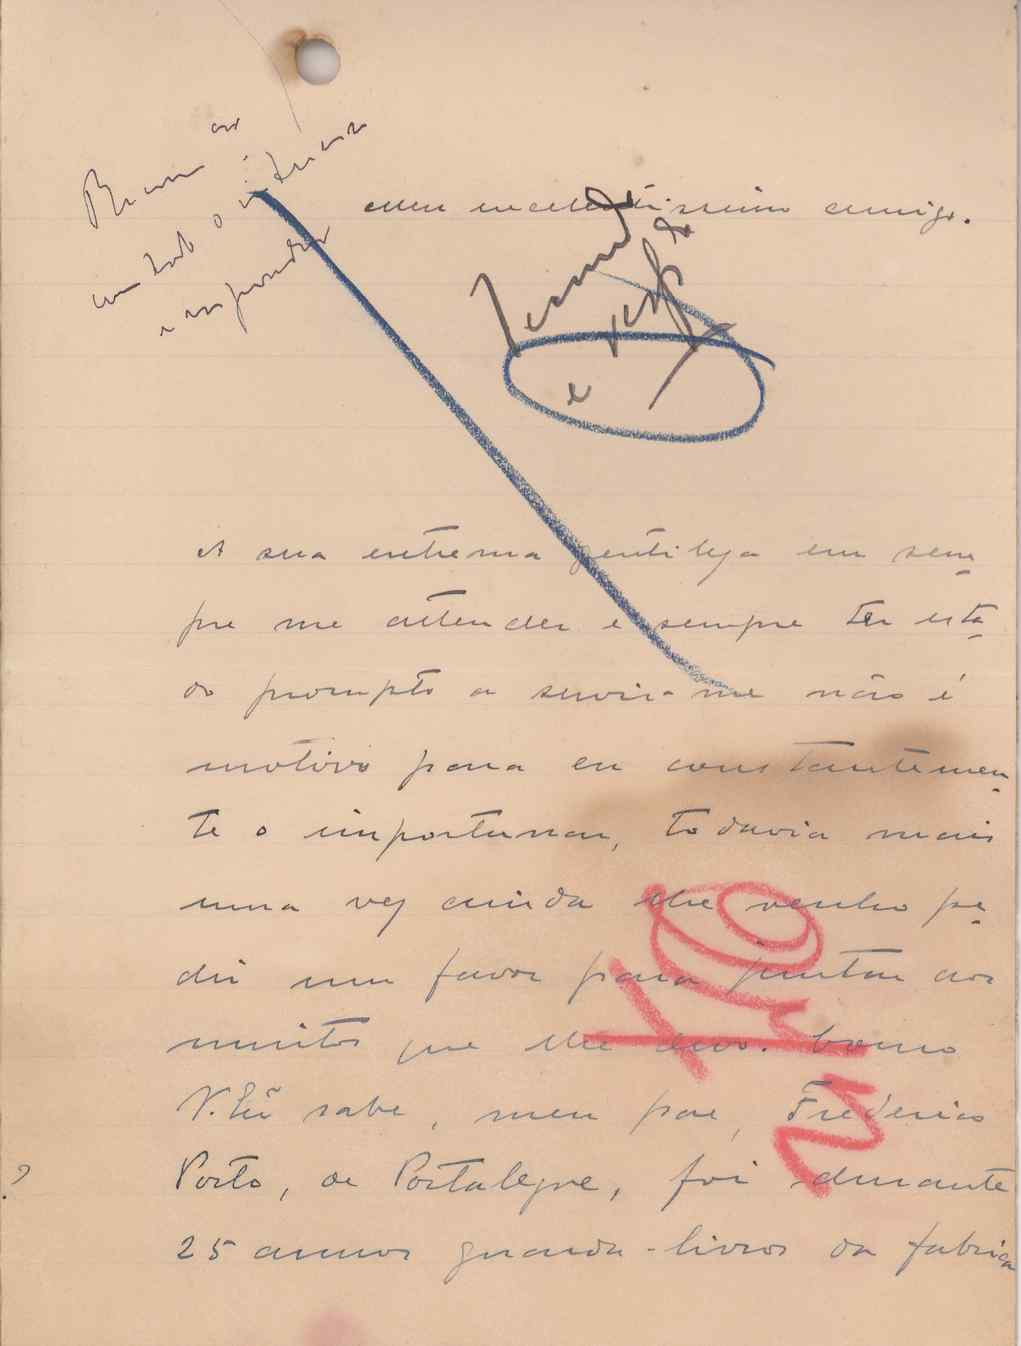 com todo o interesse
e responder
Meu excelentissimo amigo.
A sua extrema gentileza em sem-
pre me attender e sempre ter esta-
do prompto a servir-me não é
motivo para eu constantemen-
te o importunar, todavia mais
uma vez ainda lhe venho pe-
dir um favor para juntar aos
muitos que lhe devo. Como
V. Exª sabe, meu pae, Frederico
Porto, de Portalegre, foi durante
?
25 annos guarda-livros da fabrica